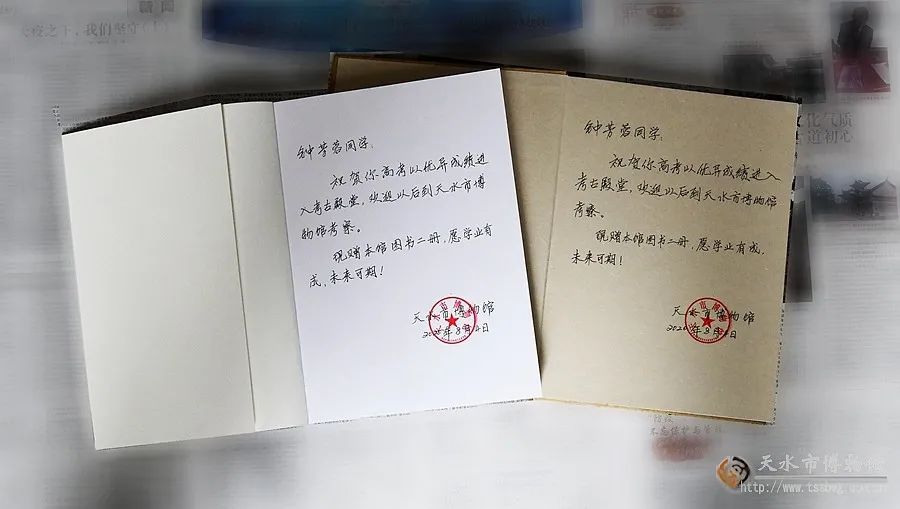 钟芳蓉同学：
祝贺你高考以优异成绩进
入考古殿堂，欢迎以后到天水市博
物馆考察。
现赠本馆图书二册，愿学业有
成，未来可期！
天水市博物馆
钟芳蓉同学：
祝贺你高考以优异成绩进入
考古殿堂，欢迎以后到天水市博物馆
考察。
现赠本馆图书二册，愿学业有成，
未来可期！
天水市博物馆
我们坚守
化气质
道初心
天水市博物馆